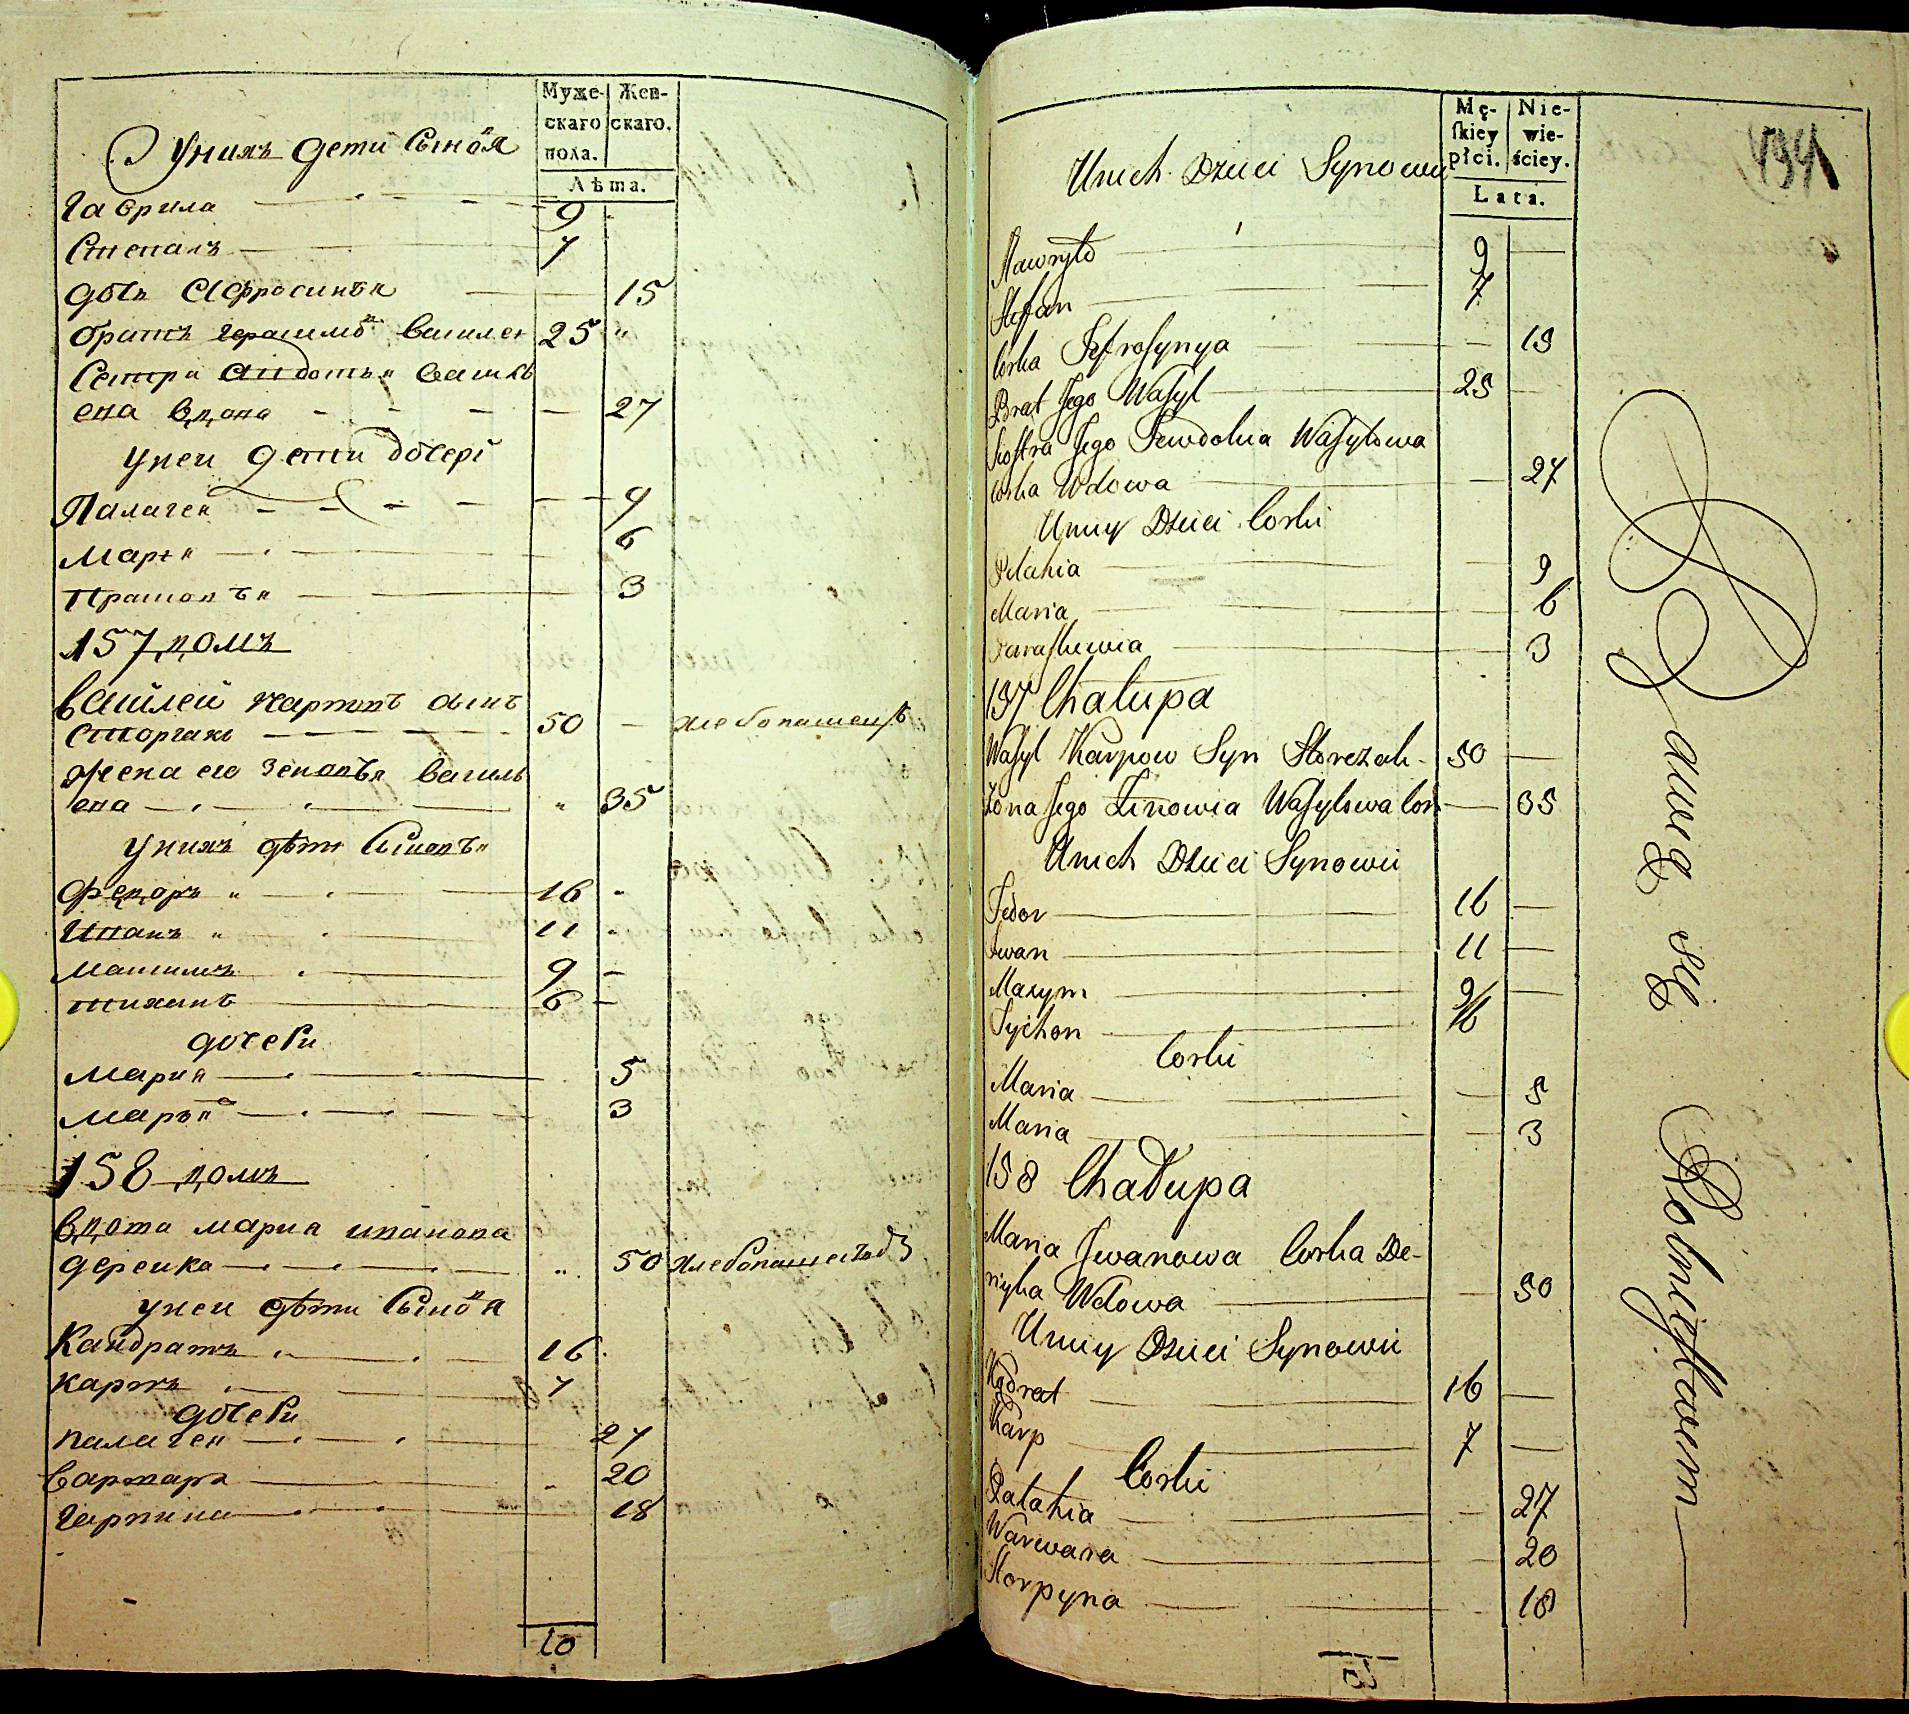 Муже-
скаго
пола.
Жен-
скаго.
Лѣта.
Унихъ дети Сыновя
Гаврила 9
Степанъ 7
дочь Афросинья 15
братъ Герасимовъ василеи 25 "
Сестра Авдотья васил
ева вдова 27
Унеи дети дочери
Палагея 9
Маря 6
Прасковья 3
157 домъ
василей Карповъ сынъ
Сторжакъ 50 — хлебопашецъ
Жена его Зеновья василь
ева " 35
Унихъ дѣти Сыновья
Федоръ " 16
Иванъ " 11
Максимъ 9 —
тихонъ 6 —
дочери
Мария 5
Марья 3
158 домъ
вдова мария иванова
дерейка " 50 хлебопашество
унеи дѣти Сыновя
Кандратъ 16
Карпъ 7
дочери
палагея 27
варвара 20
Гарпина 18
10
Mę-
skiey
płci.
Nie-
wie-
ściey.
Lata.
494
Unich Dzieci Synowie
Hawryło 9 —
Stefan 7
Corka Jefrosynya — 15
Brat Jego Wasyl 25 —
Siostra Jego Jewdokia Wasylowa
Corka Wdowa — 27
Uniey Dzieci Corki
Pelahia — 9
Maria 6
Paraskiewia 3
157 Chałupa
Wasyl Karpow Syn Storeżak 50 —
Żona Jego Zinowia Wasylowa Cor — 35
Unich Dzieci Synowie
Fedor 16 —
Iwan 11 —
Maxym 9 —
Tychon 6
Corki
Maria — 5
Maria — 3
158 Chałupa
Maria Iwanowa Corka De-
reyka Wdowa — 50
Uniey Dzieci Synowie
Kądrat 16 —
Karp 7 —
Corki
Palahia — 27
Warwara — 20
Horpyna — 18
10
Zawe się